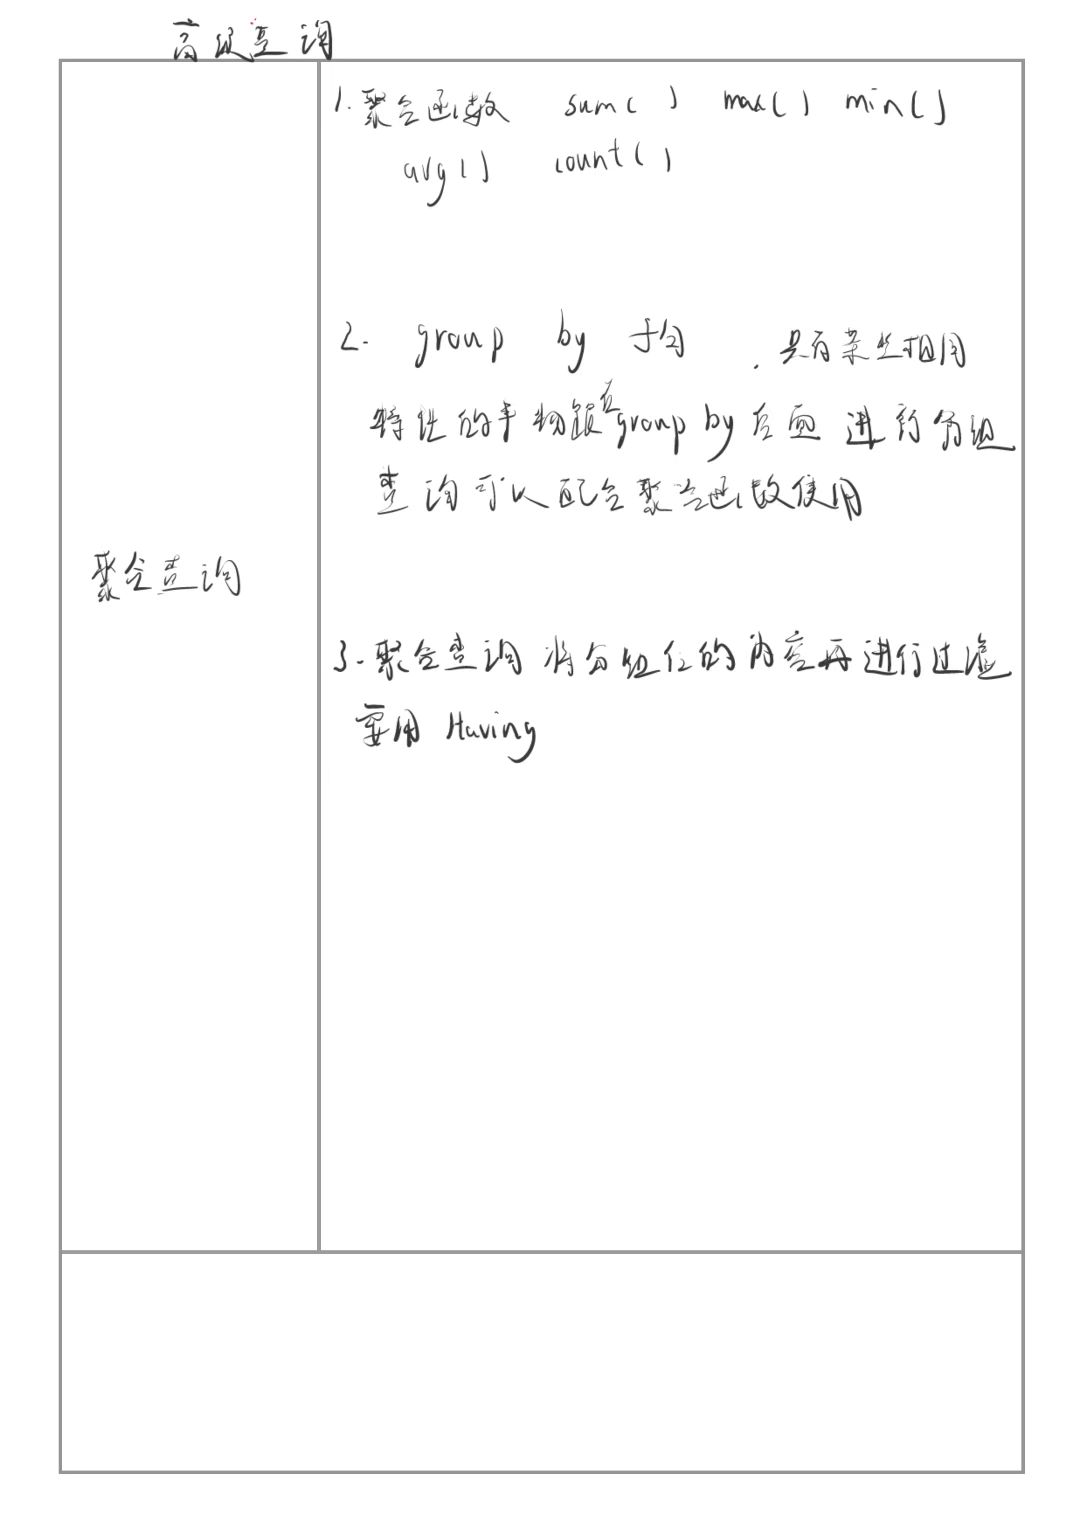 高级查询
1. 聚合函数 sum() max() min()
avg() count()
2. group by 子句 . 具有某些相同
特性的事物跟在group by后面 进行分组
查询可以配合聚合函数使用
聚合查询
3. 聚合查询 将分组后的内容再进行过滤
要用 Having